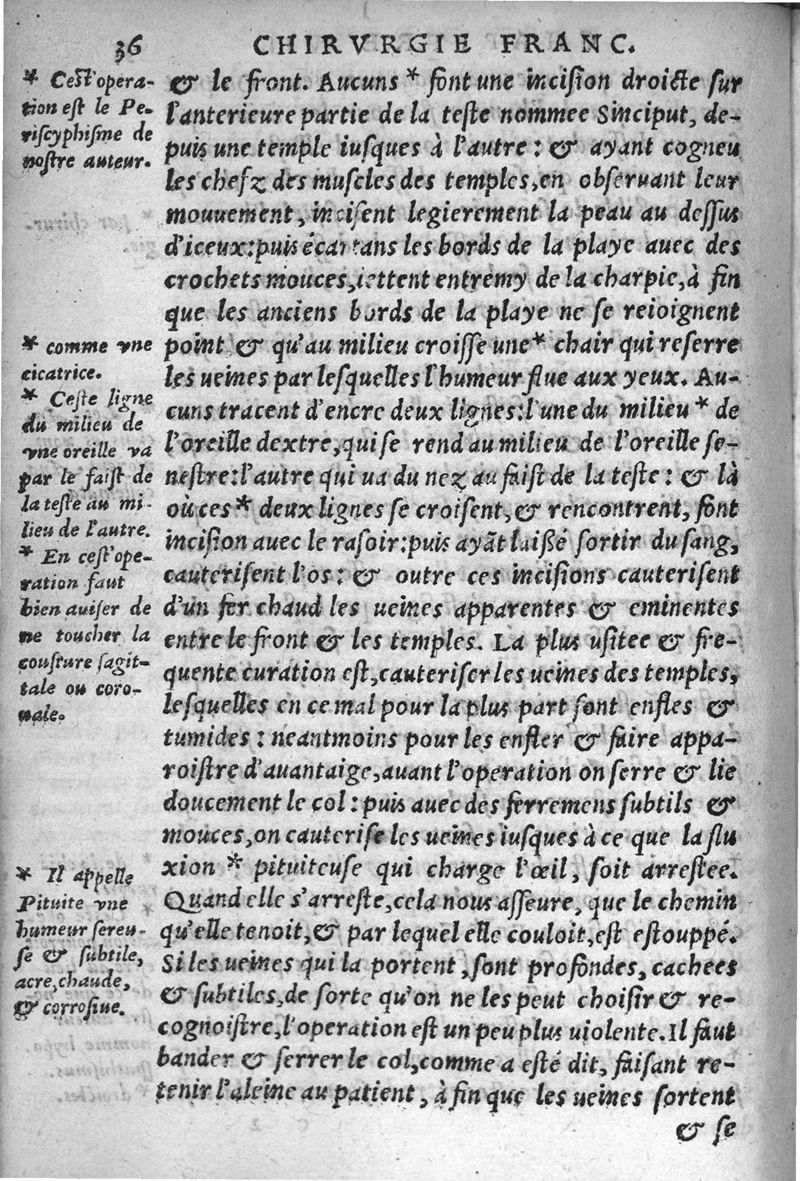 36 CHIRVRGIE FRANC.
* Cest'opera-
tion est le Pe-
riscyphisme de
nostre auteur.
& le front. Aucuns * font une incision droicte sur
l'anterieure partie de la teste nommee Sinciput, de-
puis une temple iusques à l'autre : & ayant cogneu
les chefz des muscles des temples, en observant leur
mouuement, incisent legierement la peau au dessus
d'iceux: puis écartans les bords de la playe auec des
crochets mouces, iettent entremy de la charpie, à fin
que les anciens bords de la playe ne se reioignent
point & qu'au milieu croisse une * chair qui reserre
les ueines par lesquelles l'humeur flue aux yeux. Au-
cuns tracent d'encre deux lignes: l'une du milieu * de
l'oreille dextre, qui se rend au milieu de l'oreille se-
nestre: l'autre qui ua du nez au faist de la teste : & là
où ces * deux lignes se croisent, & rencontrent, font
incision auec le rasoir: puis ayāt laißé sortir du sang,
cauterisent l'os : & outre ces incisions cauterisent
d'un fer chaud les ueines apparentes & eminentes
entre le front & les temples. La plus usitee & fre-
quente curation est, cauteriser les ueines des temples,
lesquelles en ce mal pour la plus part sont enfles &
tumides : neantmoins pour les enfler & faire appa-
roistre d'auantaige, auant l'operation on serre & lie
doucement le col : puis auec des ferremens subtils &
mouces, on cauterise les ueines iusques à ce que la flu
xion * pituiteuse qui charge l'œil, soit arrestee.
Quand elle s'arreste, cela nous asseure, que le chemin
qu'elle tenoit, & par lequel elle couloit, est estouppé.
Si les ueines qui la portent, sont profondes, cachees
& subtiles, de sorte qu'on ne les peut choisir & re-
cognoistre, l'operation est un peu plus uiolente. Il faut
bander & serrer le col, comme a esté dit, faisant re-
tenir l'aleine au patient, à fin que les ueines sortent
& se
* comme vne
cicatrice.
* Ceste ligne
du milieu de
vne oreille va
par le faist de
la teste au mi-
lieu de l'autre.
* En cest'ope-
ration faut
bien auiser de
ne toucher la
cousture sagit-
tale ou coro-
nale.
* Il appelle
Pituite vne
humeur sereu-
se & subtile,
acre, chaude,
& corrosiue.